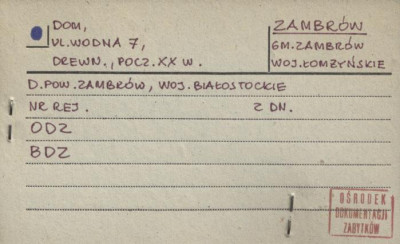 DOM,
UL. WODNA 7,
DREWN., POCZ. XX W.
ZAMBRÓW
GM. ZAMBRÓW
WOJ. ŁOMŻYŃSKIE
D. POW. ZAMBRÓW, WOJ. BIAŁOSTOCKIE
NR REJ. Z DN.
ODZ
BDZ
OŚRODEK
DOKUMENTACJI
ZABYTKÓW